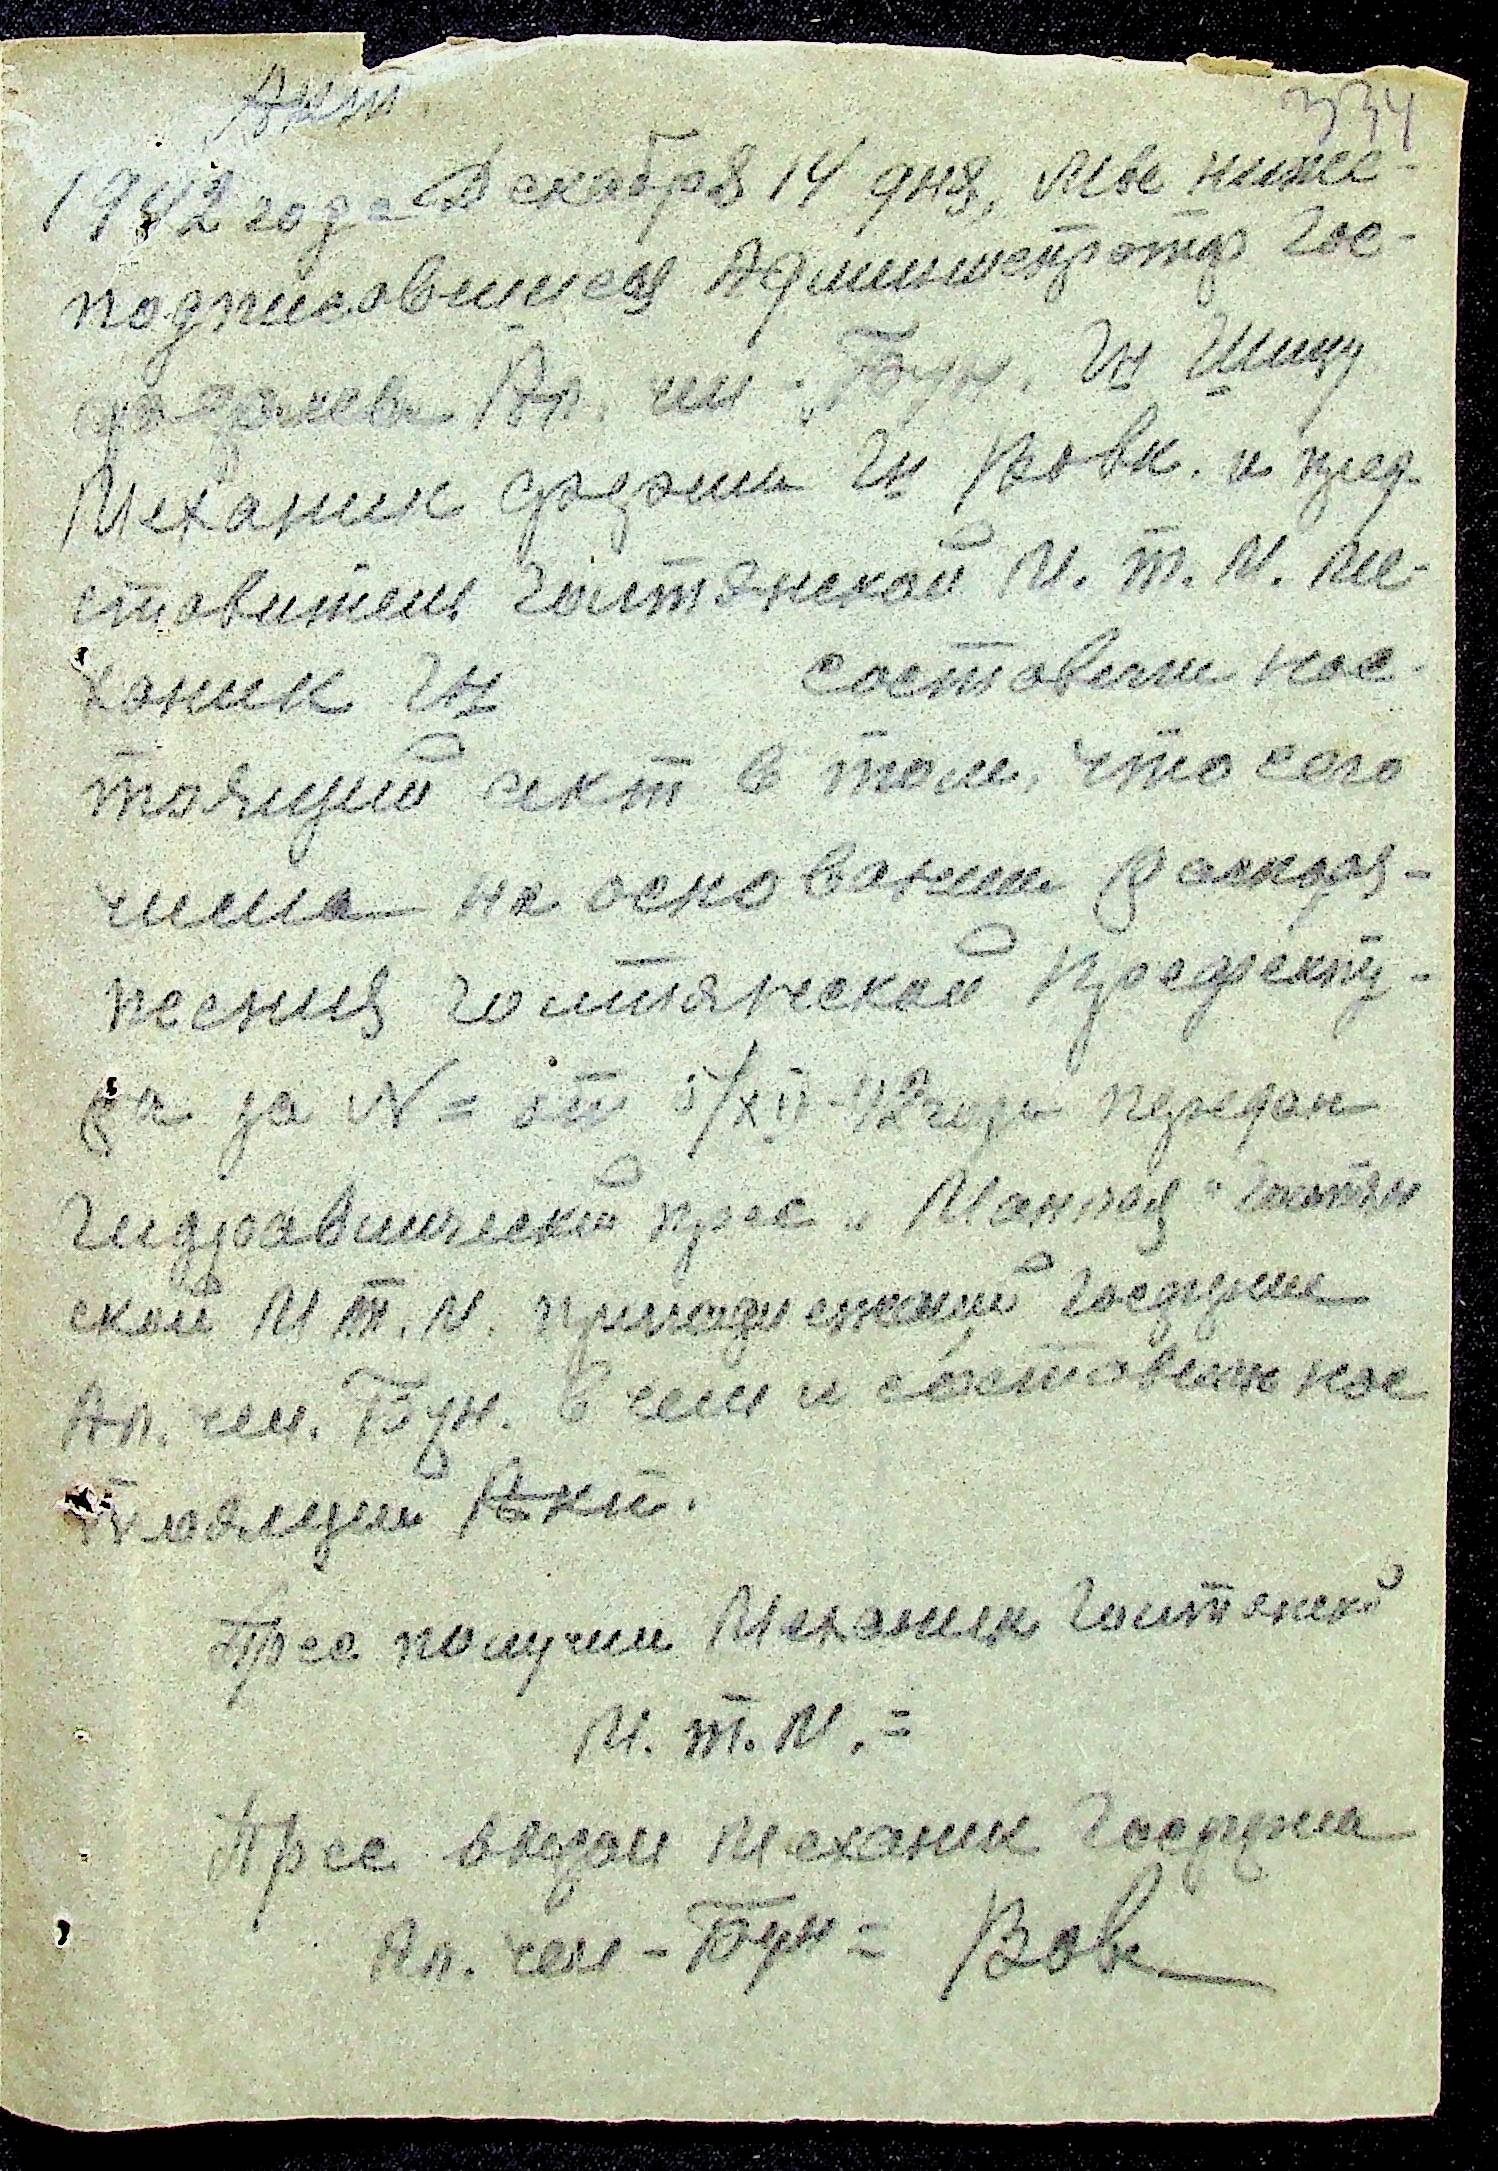 Акт
334
1942 года Декабря 14 дня, Мы ниже-
подписавшиеся Администратор Гос-
Ап. чел - Бун. Гн
Механик фермы Гн Вовк. и пред-
ставитель Голтянской М. т. М. ме-
ханик Гн составили нас-
тоящий акт в том, что сего
числа на основании распоря-
жения Голтянской Префекту-
ры за N= от 5/XII-42 года передан
Гидравлический прес „ Голтян
ской М т. М. принадлежащий Госферме
Ап. чел. Бун. в чем и составлен нас
тоящий Акт.
Прес получил Механик Голтянской
М. т. М. =
Прес выдал Механик Госферма
Ап. чел - Бун = Вовк